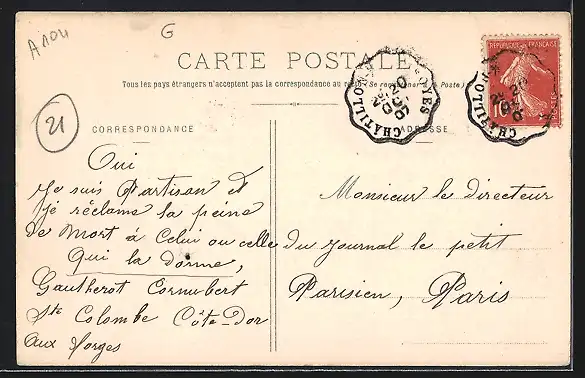 A104
G
CARTE POSTALE
Tous les pays étrangers n'acceptent pas la correspondance au (Se Poste)
21
CORRESPONDANCE
ADRESSE
RÉPUBLIQUE FRANÇAISE
10
CHATILLON
20
OC
07
Oui
Je suis Partisan et
Je réclame la peine
de Mort à Celui ou celle
Qui la donne,
Gautherot Cornubert
Ste Colombe Côte-Dor
aux forges
Monsieur le directeur
du journal le petit
Parisien, Paris